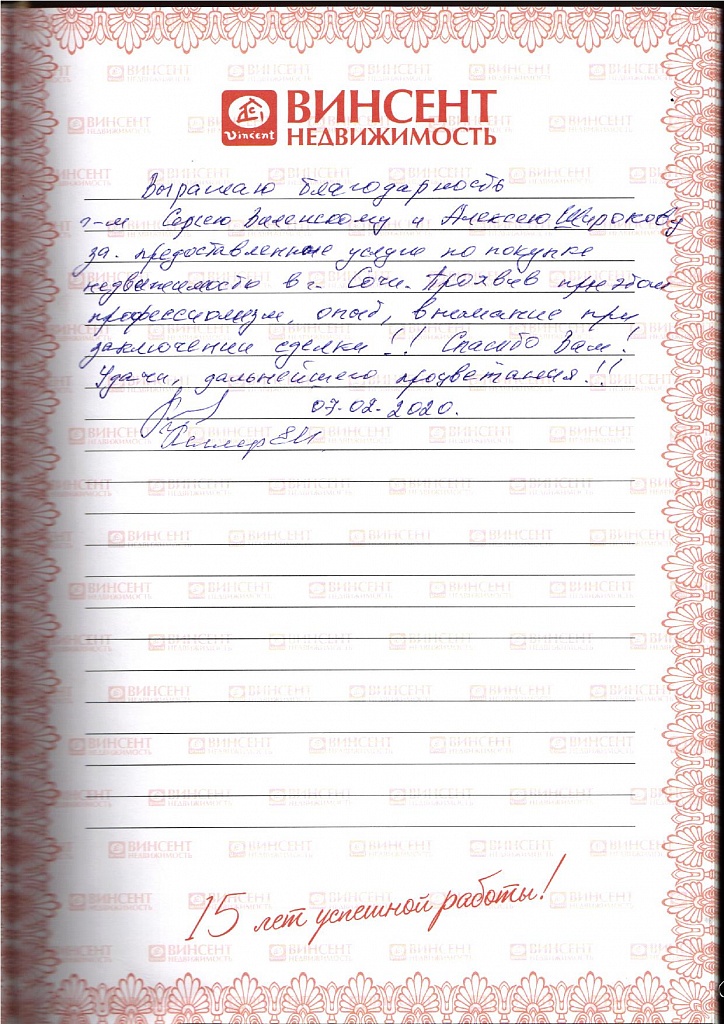 Vincent
ВИНСЕНТ
НЕДВИЖИМОСТЬ
Выражаю благодарность
г-м Сергею Виленскому и Алексею Широкову
за. предоставленные услуги по покупке
недвижимости в г. Сочи. Проявив при этом
профессионализм, опыт, внимание при
заключении сделки!! Спасибо Вам!
Удачи, дальнейшего процветания!!
07.02.2020.
15 лет успешной работы!